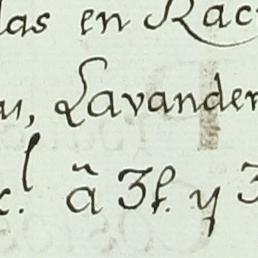 las en Rac
u, Lavander
c.l ã ʒſ. y ʒ